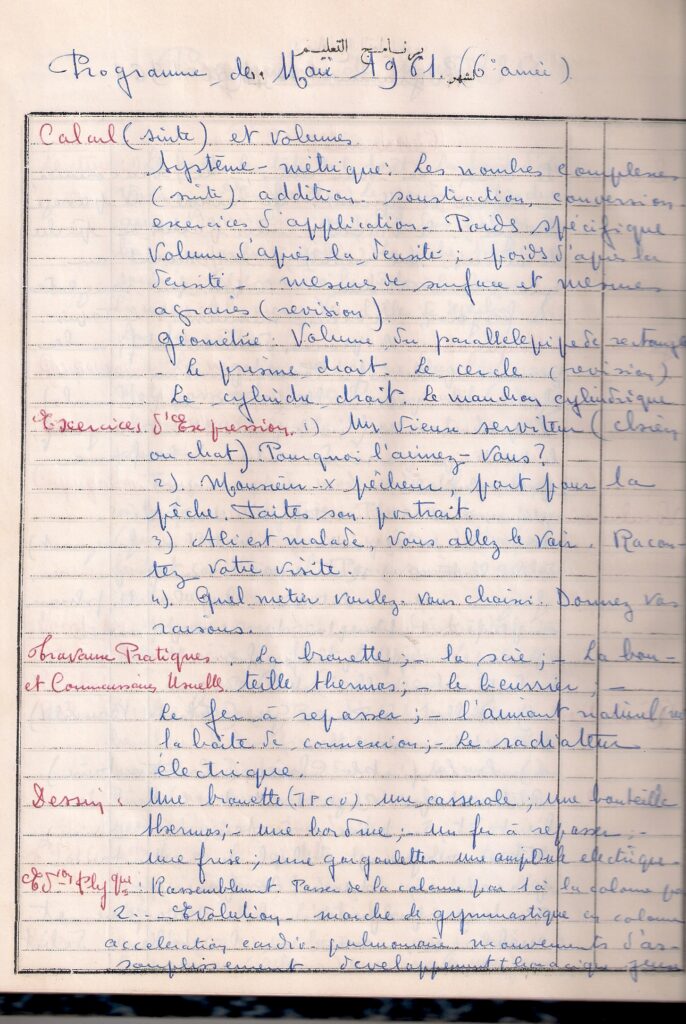 برنامج التعليم
Programme de Mai 1961. (6° année)
لشهر
Calcul (suite) et volumes
Système-métrique: Les nombres complexes
(suite) addition. soustraction, conversion
exercices d'application. Poids spécifique
Volume d'après la densité; poids d'après la
densité - mesures de surface et mesures
agraires (revision)
géométrie: Volume du parallelepipede rectangle
- Le prisme droit. Le cercle (revision)
Le cylindre droit. Le manchon cylindrique
Exercices d'Expression. 1) Un vieux serviteur (chien
ou chat) Pourquoi l'aimez-vous?
2). Monsieur X pêcheur, part pour la
pêche. Faites son portrait.
3) Ali est malade, vous allez le voir. Racon-
tez votre visite.
4). Quel metier voulez-vous choisir. Donnez vos
raisons.
Travaux Pratiques. La brouette; - la scie; - La bou-
et Connaissances Usuelles teille thermos; - le beurrier; -
Le fer à repasser; - l'aimant naturel
la boîte de connexion; - Le radiateur
électrique.
Dessin: Une brouette (TPCU) une casserole; une bouteille
thermos; - une bordure; - un fer à repasser; -
une frise; une gargoulette - une ampoule electrique
Ed. on Phy que: Rassemblement. Passer de la colonne par 1 à la colonne par
2. - Evolution - marche de gymnastique en colonne
acceleration cardio-pulmonaire mouvements d'as-
souplissement developpement thoracique jeux